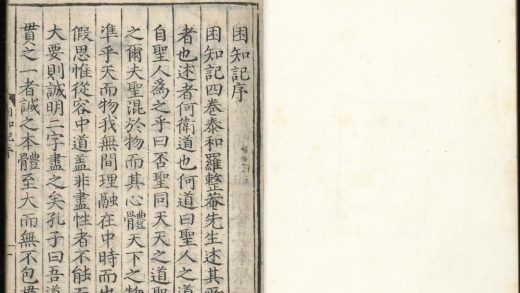 困知記序
困知記四卷泰和羅整菴先生述其
者也述者何衛道也何道曰聖人之道
自聖人爲之乎曰否聖同天天之道聖
之爾夫聖混於物而其心體天下之物
準乎天而物我無間理融在中時而出
假思惟從容中道盖非盡性者不能至
大要則誠明二字盡之矣孔子曰吾道
貫之一者誠之本體至大而無不包貫